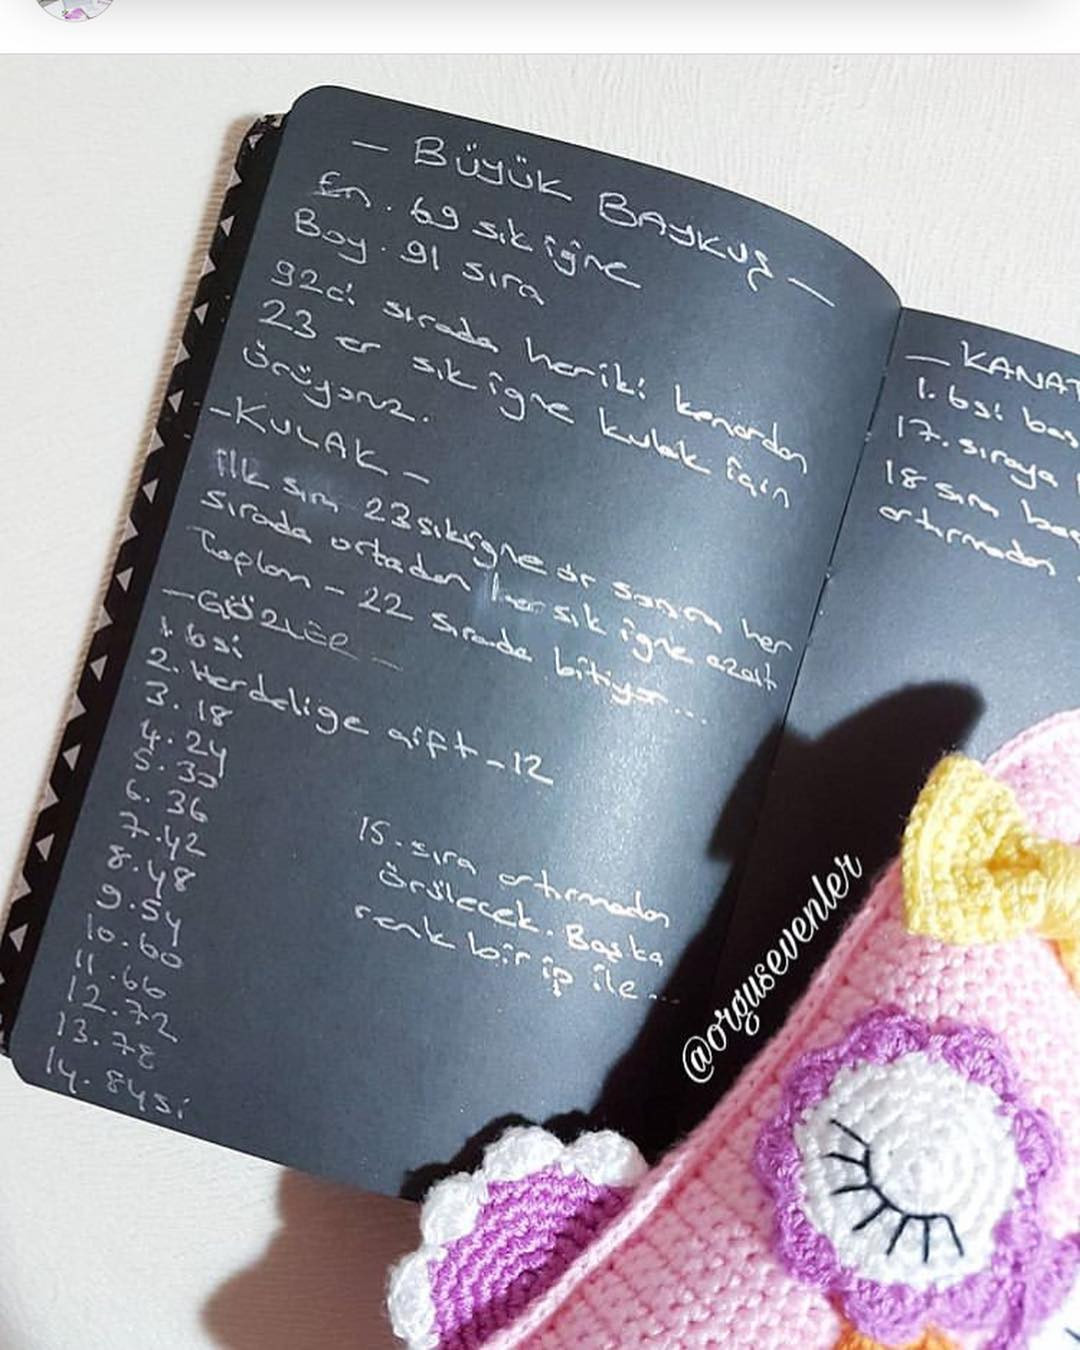 — BÜYÜK BAYKUŞ —
En. 69 sık iğne
Boy. 91 sıra
92ci sırada her iki kenardan
23 er sık iğne kulak için
örüyoruz.
— KULAK —
ilk sıra 23 sık iğne ör sonra her
sırada ortadan 1 er sık iğne azalt
Toplam - 22 sırada bitiyor...
— GÖZLER —
1. 6si
2. Her deliğe çift - 12
3. 18
4. 24
5. 30
6. 36
7. 42
8. 48
9. 54
10. 60
11. 66
12. 72
13. 78
14. 84 si
15. sıra artırmadan
örülecek. Başka
renk bir ip ile...
— KANAT
1. 6si baş
17. sıraya
18 sıra
artırmadan
@orgusevenler